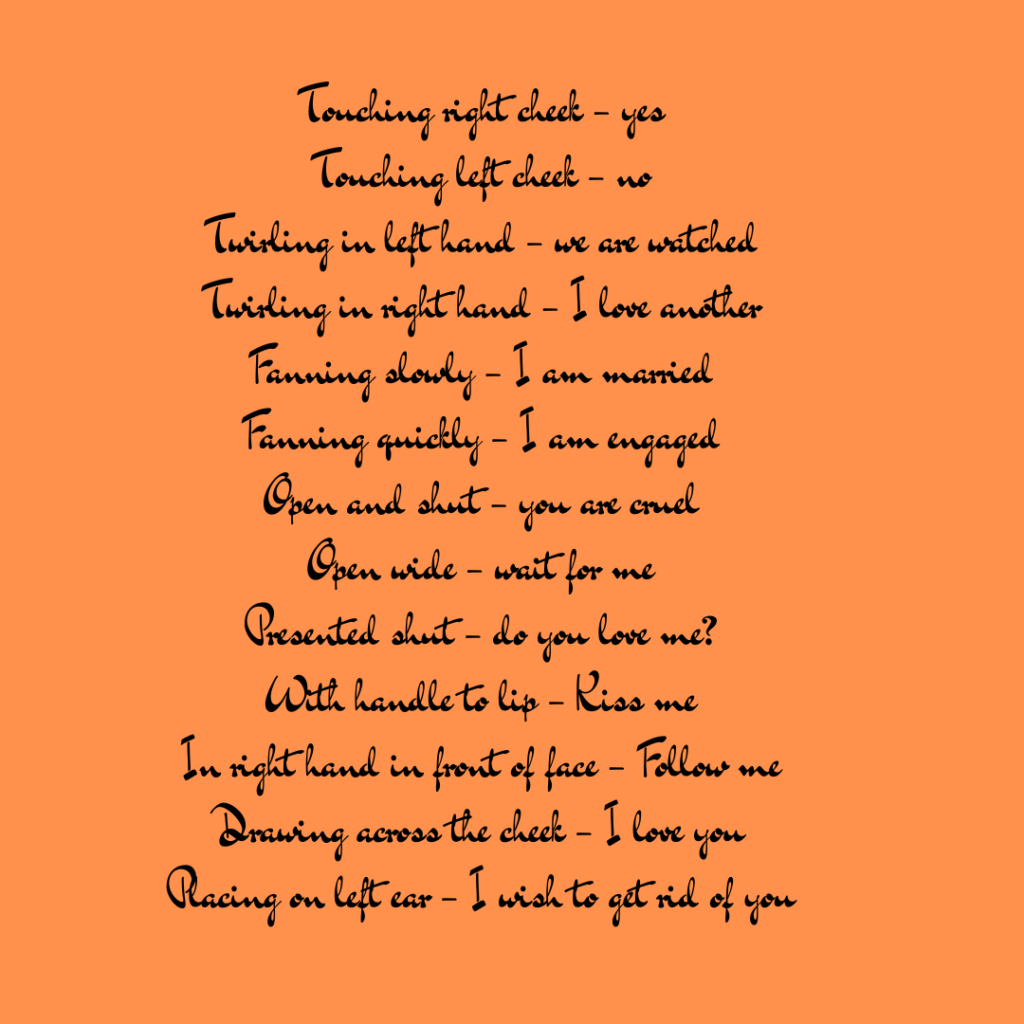 Touching right cheek – yes
Touching left cheek – no
Twirling in left hand – we are watched
Twirling in right hand – I love another
Fanning slowly – I am married
Fanning quickly – I am engaged
Open and shut – you are cruel
Open wide – wait for me
Presented shut – do you love me?
With handle to lip – Kiss me
In right hand in front of face – Follow me
Drawing across the cheek – I love you
Placing on left ear – I wish to get rid of you